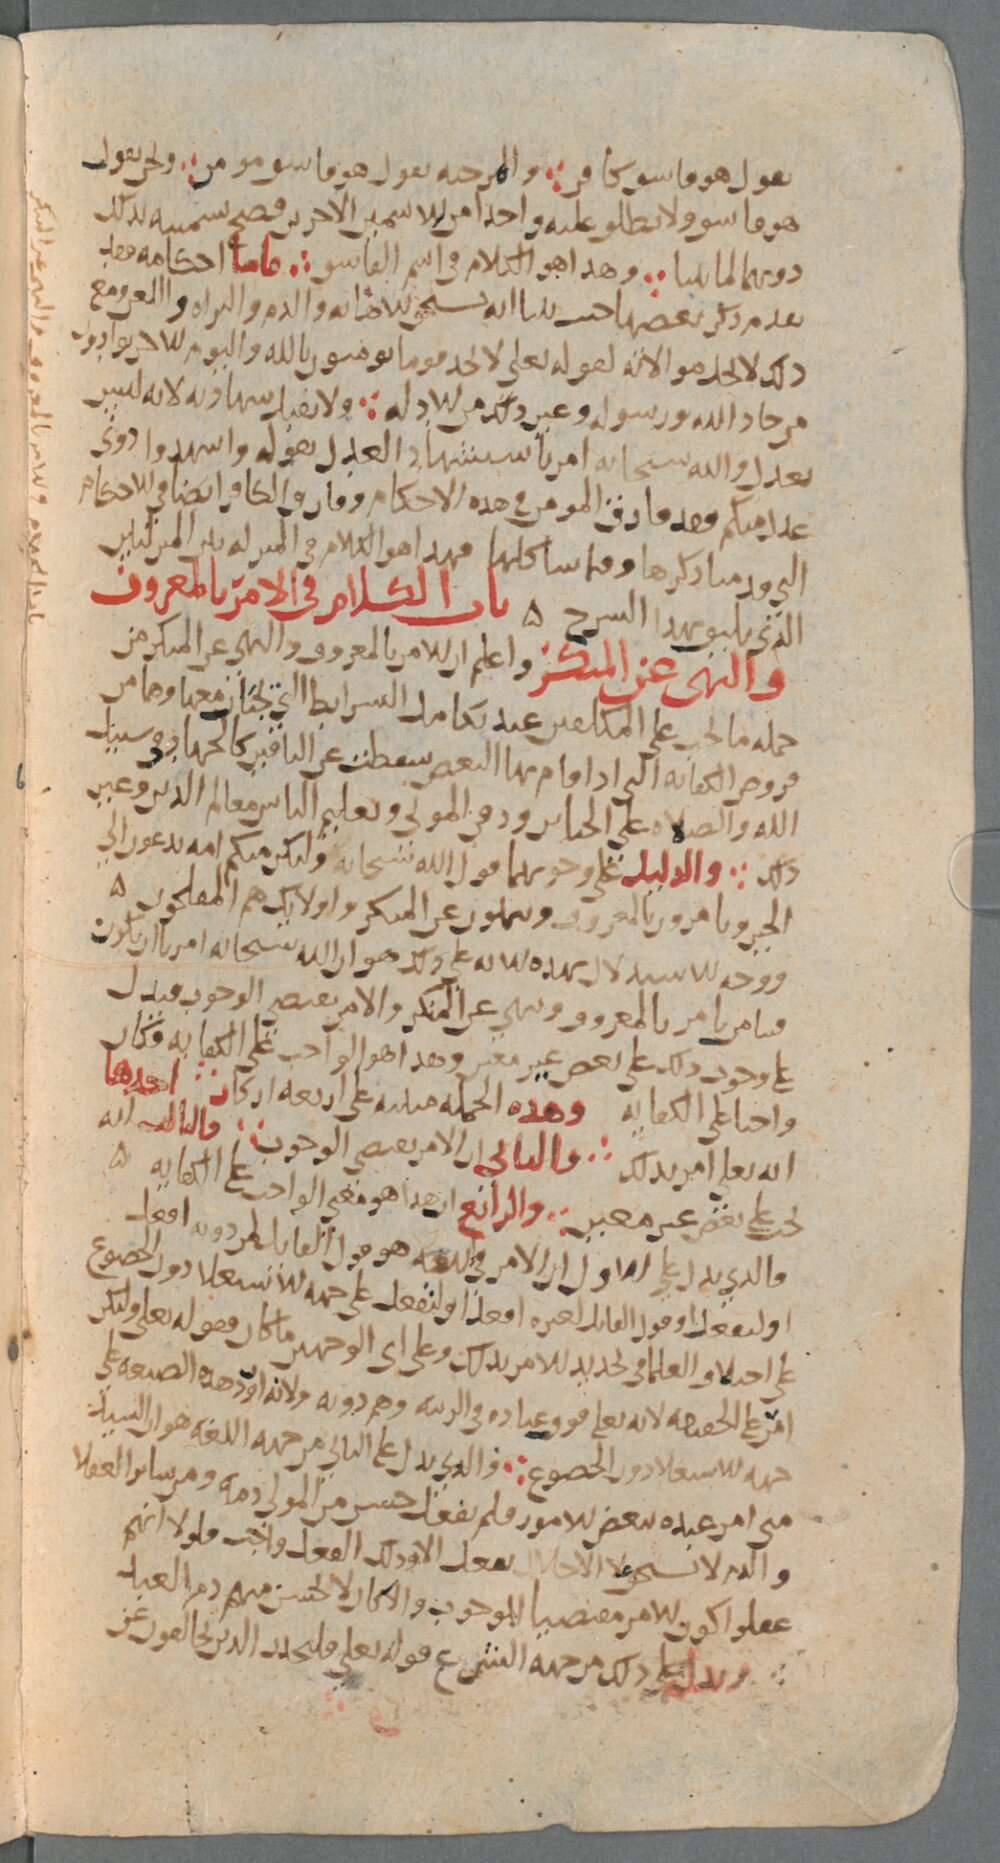 يقول هو فاسق كافر ∴ والمرجئة يقول هو فاسق مومن ∴ ونحن نقول
هو فاسق ولا يطلق عليه واحدا من الاسمين الاخرين فصح تسميته بذلك
دونهما لما بينا ∴ وهذا هو الكلام في اسم الفاسق ∴ فاما احكامه فقد
تقدم ذكر بعضها حيث بينا انه يستحق الاهانة والذم والبراه واللعن ومع
ذلك لا نجد موالاته لقوله تعلى لا تجد قوما يومنون بالله واليوم الاخر يوادون
من حاد الله ورسوله وغير ذلك من الادلة ∴ ولا تقبل شهادته لانه ليس
بعدل والله سبحانه امر باستشهاد العدل بقوله واشهدوا ذوي
عدل منكم فقد فارق المومن في هذه الاحكام وفارق الكافر ايضا في الاحكام
التي قدمنا ذكرها وما شاكلها فهذا هو الكلام في المنزلة بين المنزلتين
الذي يليق بهذا الشرح ۵ باب الكلام في الامر بالمعروف
والنهي عن المنكر واعلم ان الامر بالمعروف والنهي عن المنكر من
جملة ما يجب على المكلفين عند تكامل الشرايط التي يجبان معها وهما من
فروض الكفاية التي اذا قام بها البعض سقطت عن الباقين كالجهاد في سبيل
الله والصلاة على الجنايز ودفن الموتى وتعليم الناس معالم الدين وغير
ذلك ∴ والدليل على وجوبهما قول الله سبحانه ولتكن منكم امة يدعون الى
الخير ويامرون بالمعروف وينهون عن المنكر واولايك هم المفلحون ۵
ووجه الاستدلال بهذه الاية على ذلك هو ان الله سبحانه امر بان يكون
منا من يامر بالمعروف وينهى عن المنكر والامر يقتضي الوجوب فيدل
على وجوب ذلك على بعض غير معين وهذا هو الواجب على الكفاية فكان
واجبا على الكفاية وهذه الجملة مبنية على اربعة اركان ∴ احدها
انه تعلى امر بذلك ∴ والثاني ان الامر يقتضي الوجوب ∴ والثالث انه
يجب على بعض غير معين ∴ والرابع ان هذا هو معنى الواجب على الكفاية ۵
فالذي يدل على الاول ان الامر في اللغة هو قول القايل لمن دونه افعل
او ليفعل او قول القايل لغيره افعل او ليفعل على جهة الاستعلا دون الخضوع
على اختلاف العلما في تحديد الامر بذلك وعلى اي الوجهين ما كان فقوله تعلى ولتكن
امر على الحقيقة لانه تعلى فوق عباده في الرتبة وهم دونه ولانه اورد هذه الصيغة على
جهة الاستعلا دون الخضوع ∴ والذي يدل على الثاني من جهة اللغة هو ان السيد
متى امر عبده ببعض الامور فلم يفعل حسن من المولى ذمه ومن ساير العقلا
والذم لا يستحق الا الاخلال بفعل الا وذلك الفعل واجب فلولا انهم
عقلوا كون الامر مقتضيا للوجوب والا كان لا يحسن منهم ذم العبد
∴ ويدل على ذلك من جهة الشرع قوله تعلى فليحذر الذين يخالفون عن